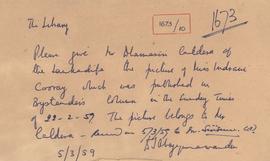 The Library
1673/10
1673
Please give Mr Dhanasiri Caldera
of the Lankadipa the picture of Miss Indrani
Cooray which was published in
Bystanders column in the Sunday Times
of 22-2-59. The picture belongs to Mr
Caldera - 5/3/59 to Mr
5/3/59